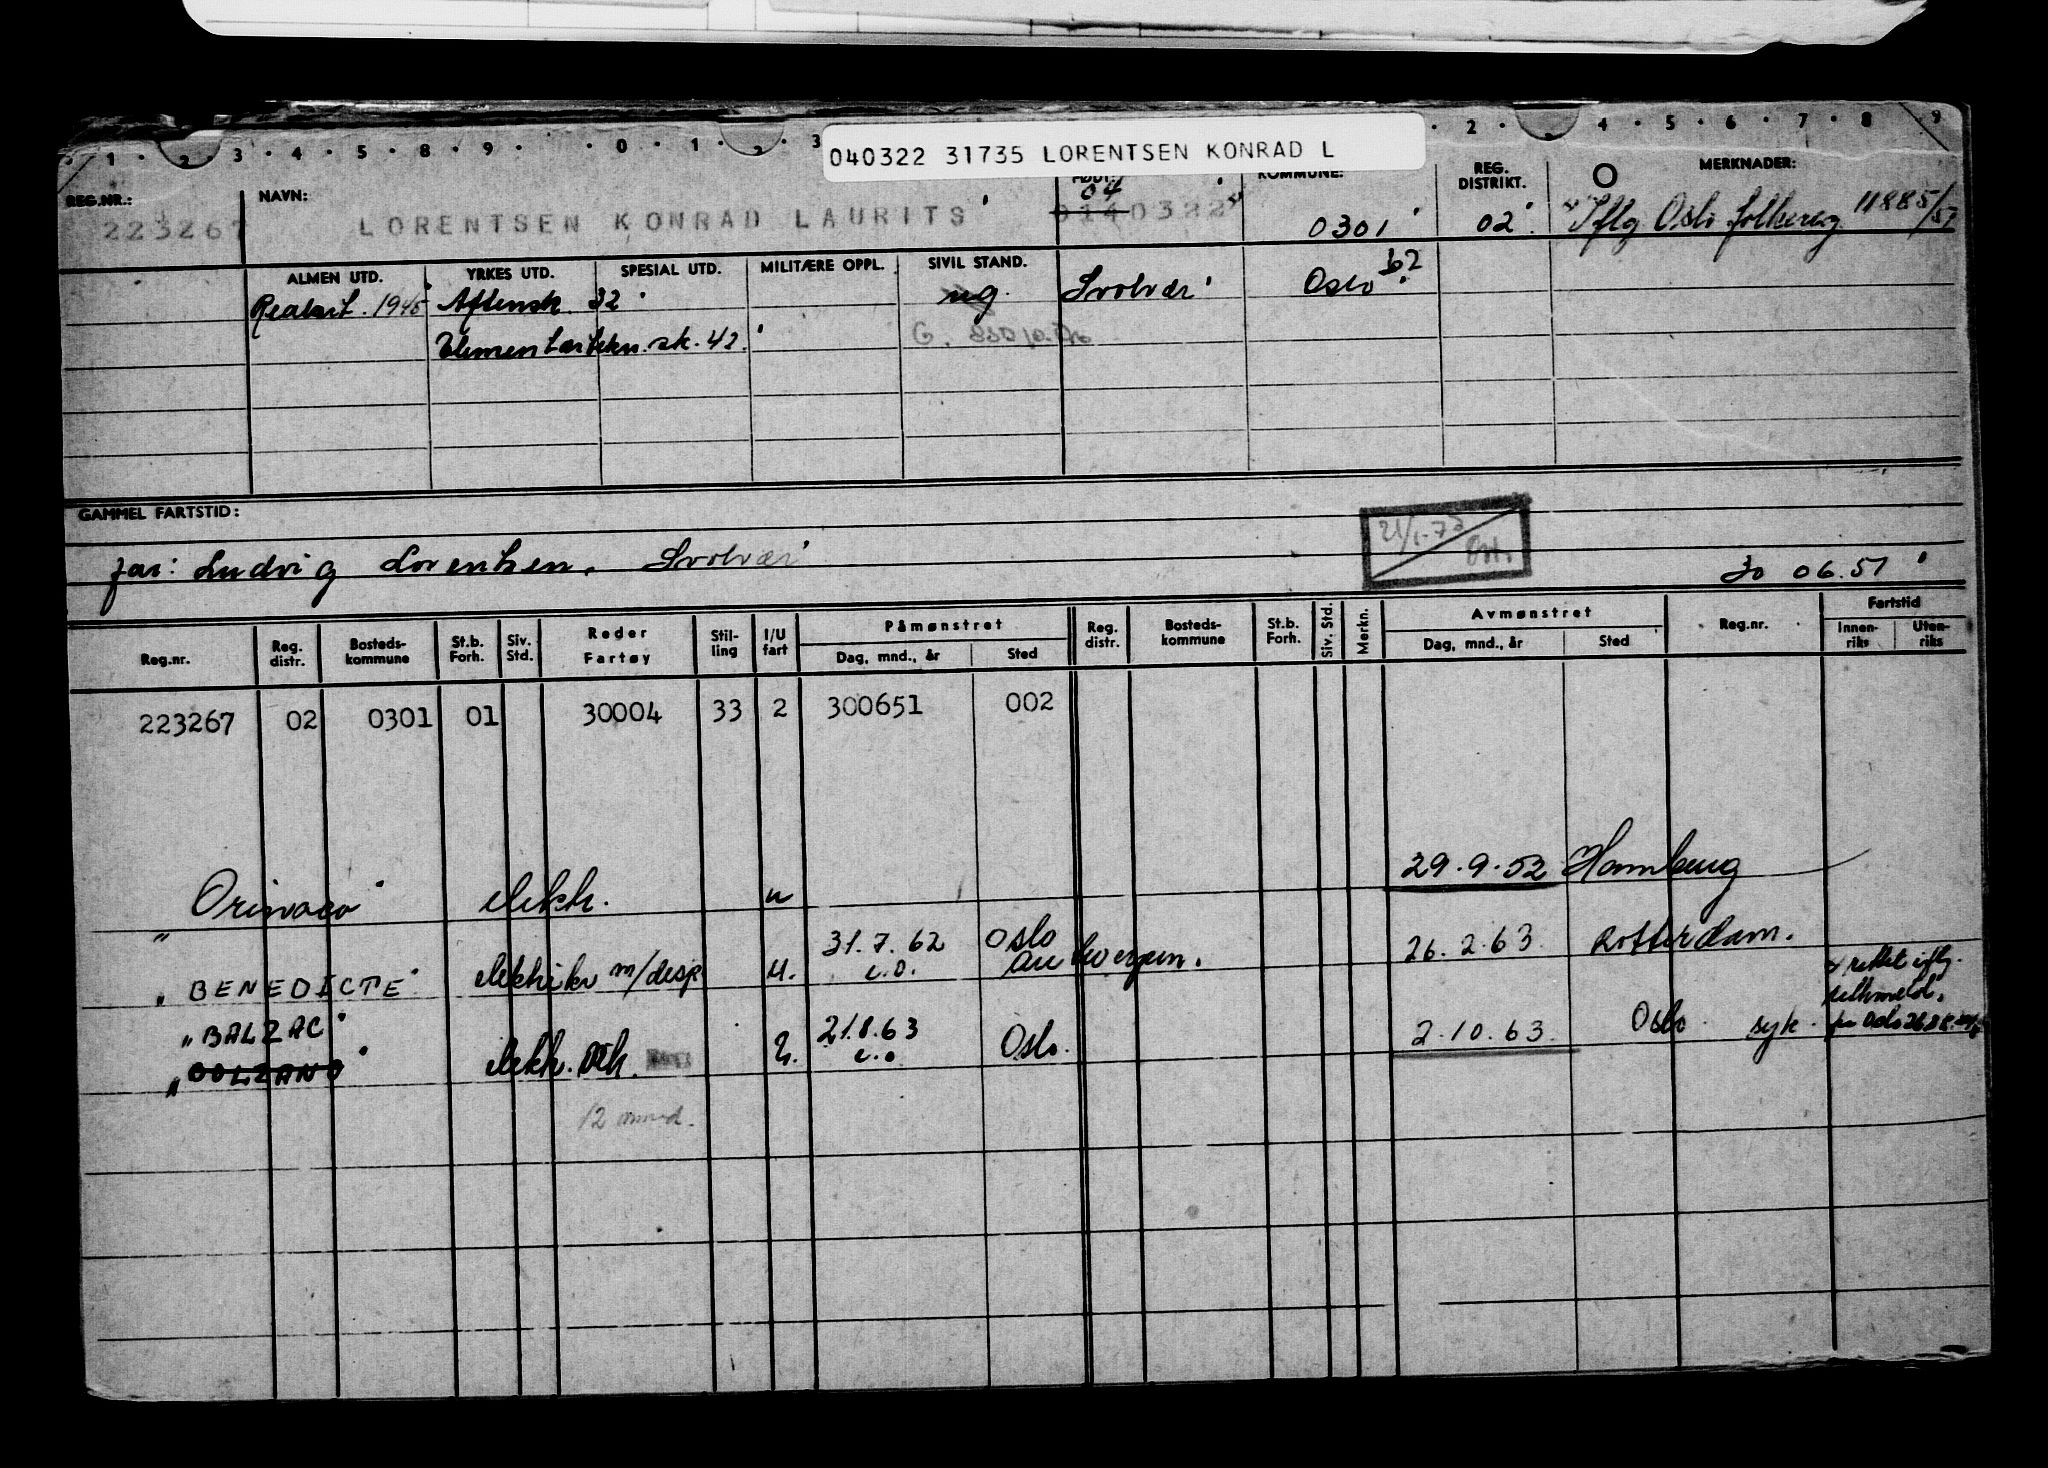 1 · 2 3 · 4 · 5 · 8 · 9 · · 0 · 1 · 2 · 3 · 2 · 4 · 5 · 6 · 7 · 8 · 9
040322 31735 LORENTSEN KONRAD L
REG.NR.: NAVN: FØDT: KOMMUNE: REG. DISTRIKT. MERKNADER:
04
223267 LORENTSEN KONRAD LAURITS 0140322 0301 02 Iflg Oslo folkereg 11885/57
ALMEN UTD. YRKES UTD. SPESIAL UTD. MILITÆRE OPPL. SIVIL STAND.
Realart. 1945 Aftensk. 32 ug Svolvær Oslo 62
Elementærtekn. sk. 42. G.
GAMMEL FARTSTID:
21/1-73
far: Ludvig Lorentsen, Svolvær 30 06.51
Reg.nr. Reg. distr. Bosteds- kommune St.b. Forh. Siv. Std. Reder Fartøy Stil- ling I/U fart Påmønstret Dag, mnd., år Sted Reg. distr. Bosteds- kommune St.b. Forh. Siv. Std. Merkn. Avmønstret Dag, mnd., år Sted Reg.nr. Fartstid Innen- riks Uten- riks
223267 02 0301 01 30004 33 2 300651 002
"Orinoco" elektr. u 29.9.52 Hamburg
"BENEDICTE" elektriker m/disp u. 31.7.62 e.o. Oslo Antwerpen. 26.2.63 Rotterdam.
x rettet iflg.
"BALZAC"
"BOLZANO" elektr. u. 21.8.63 e.o Oslo. 2.10.63 Oslo syk.
12 mnd.